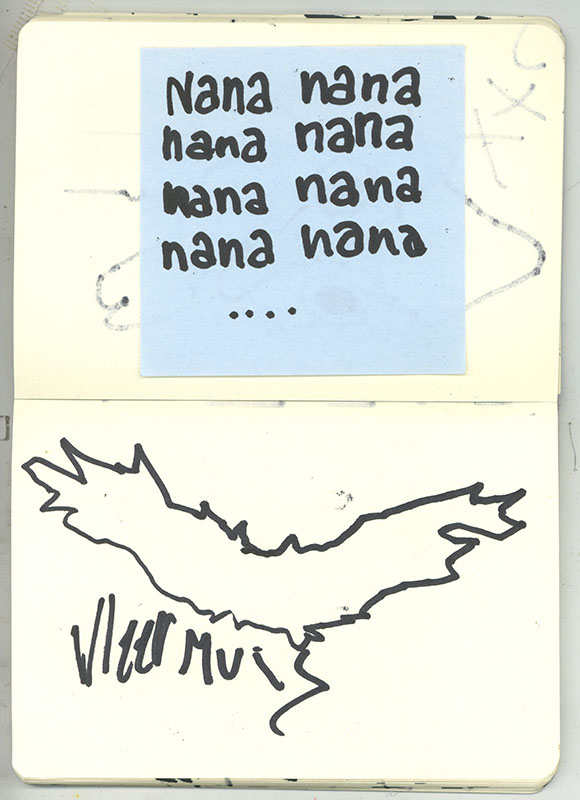 Nana nana
nana nana
nana nana
nana nana
....
Vleermuis